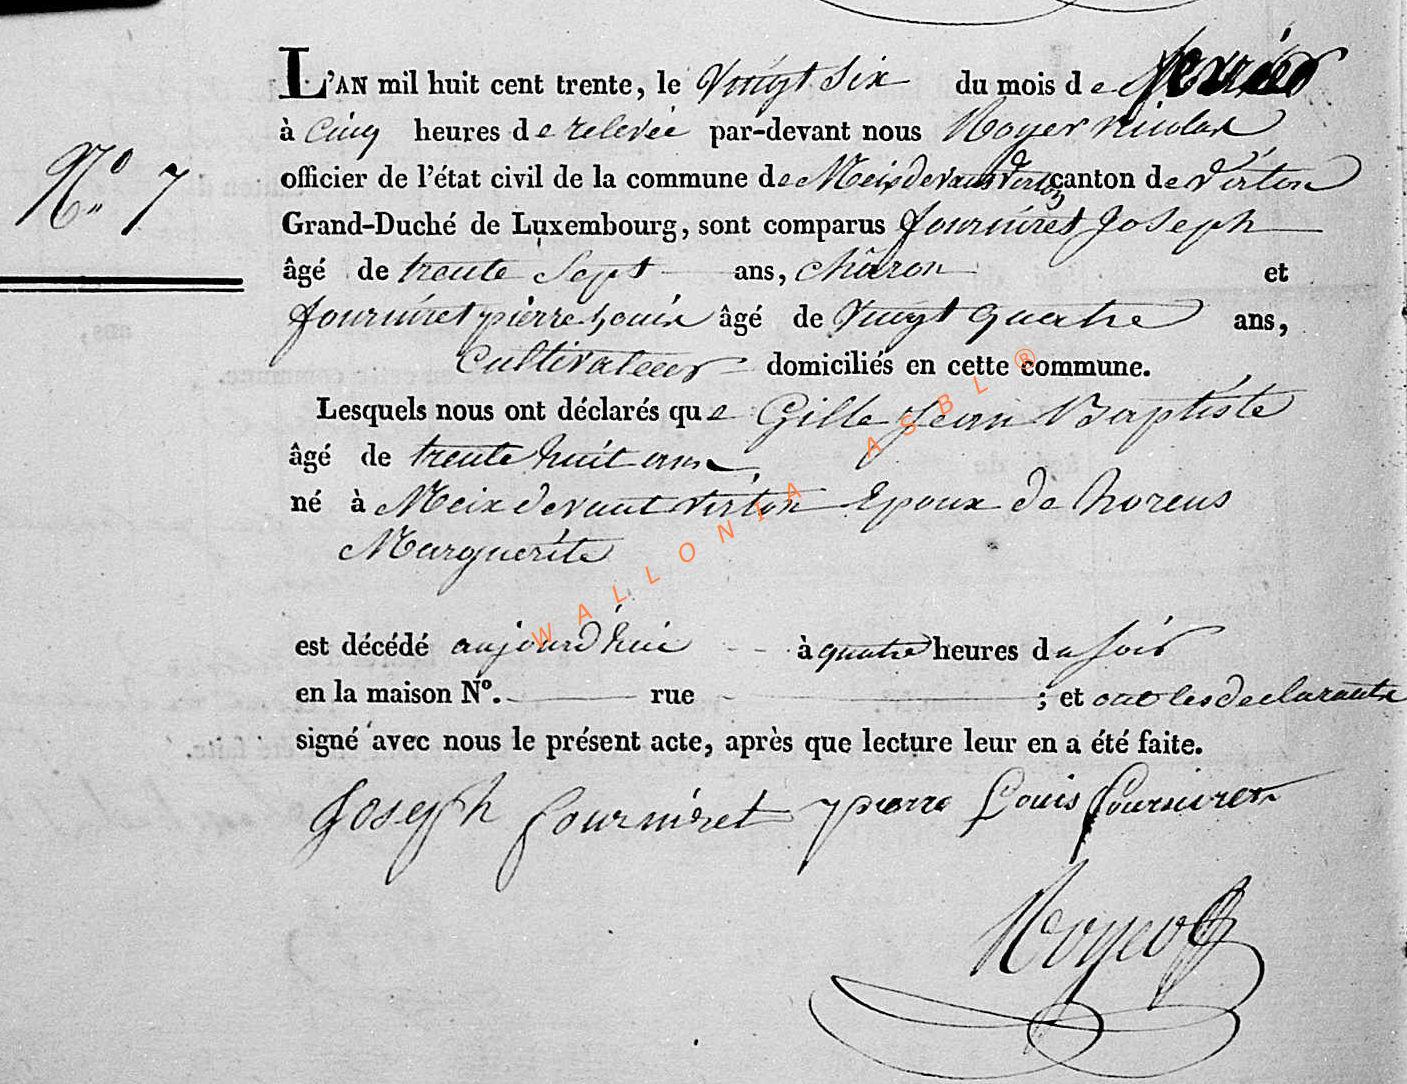 L'AN mil huit cent trente, le Vingt Six du mois de fevrier
à Cinq heures de relevée par-devant nous Royer Nicolas
officier de l'état civil de la commune de Meix devant Virton canton de Virton
Nº 7
Grand-Duché de Luxembourg, sont comparus fourniret Joseph
âgé de trente Sept ans, châron et
fourniret pierre Louis âgé de Vingt quatre ans,
Cultivateur domiciliés en cette commune.
Lesquels nous ont déclarés que Gille Jean Baptiste
âgé de trente huit ans
né à Meix devant virton Epoux de Noreus
Marguerite
est décédé aujourd'hui à quatre heures du soir
en la maison Nº. rue ; et ont les declarants
signé avec nous le présent acte, après que lecture leur en a été faite.
Joseph fourniret pierre Louis fourniret
Royer
WALLONIA ASBL ®